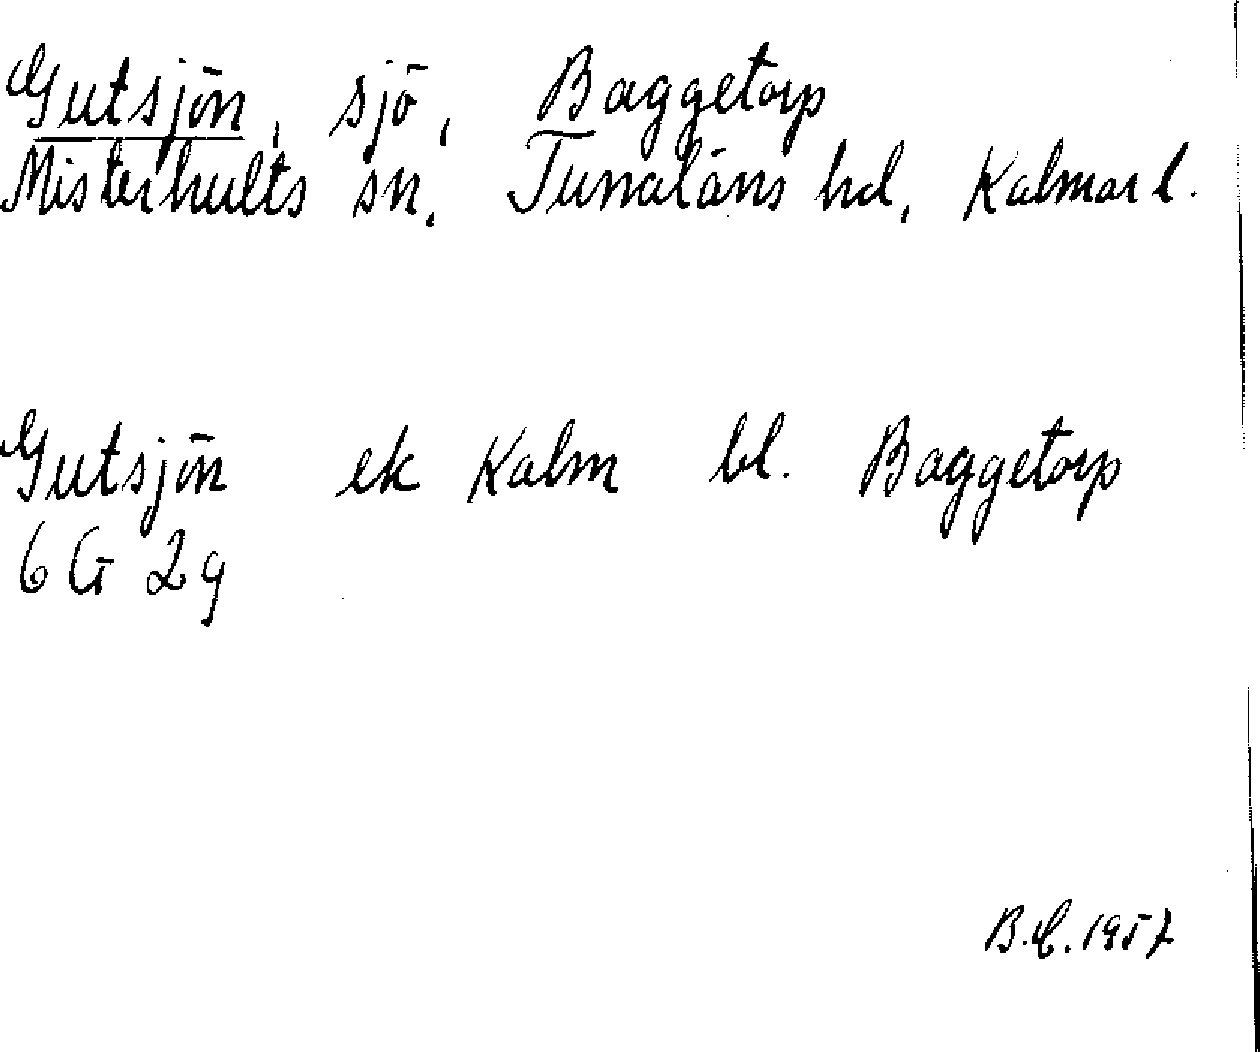 Gutsjön, sjö, Baggetorp
Misterhults sn. Tunaläns hd, Kalmar l.
Gutsjön ek Kalm bl. Baggetorp
6 G 2g
B.C. 1957